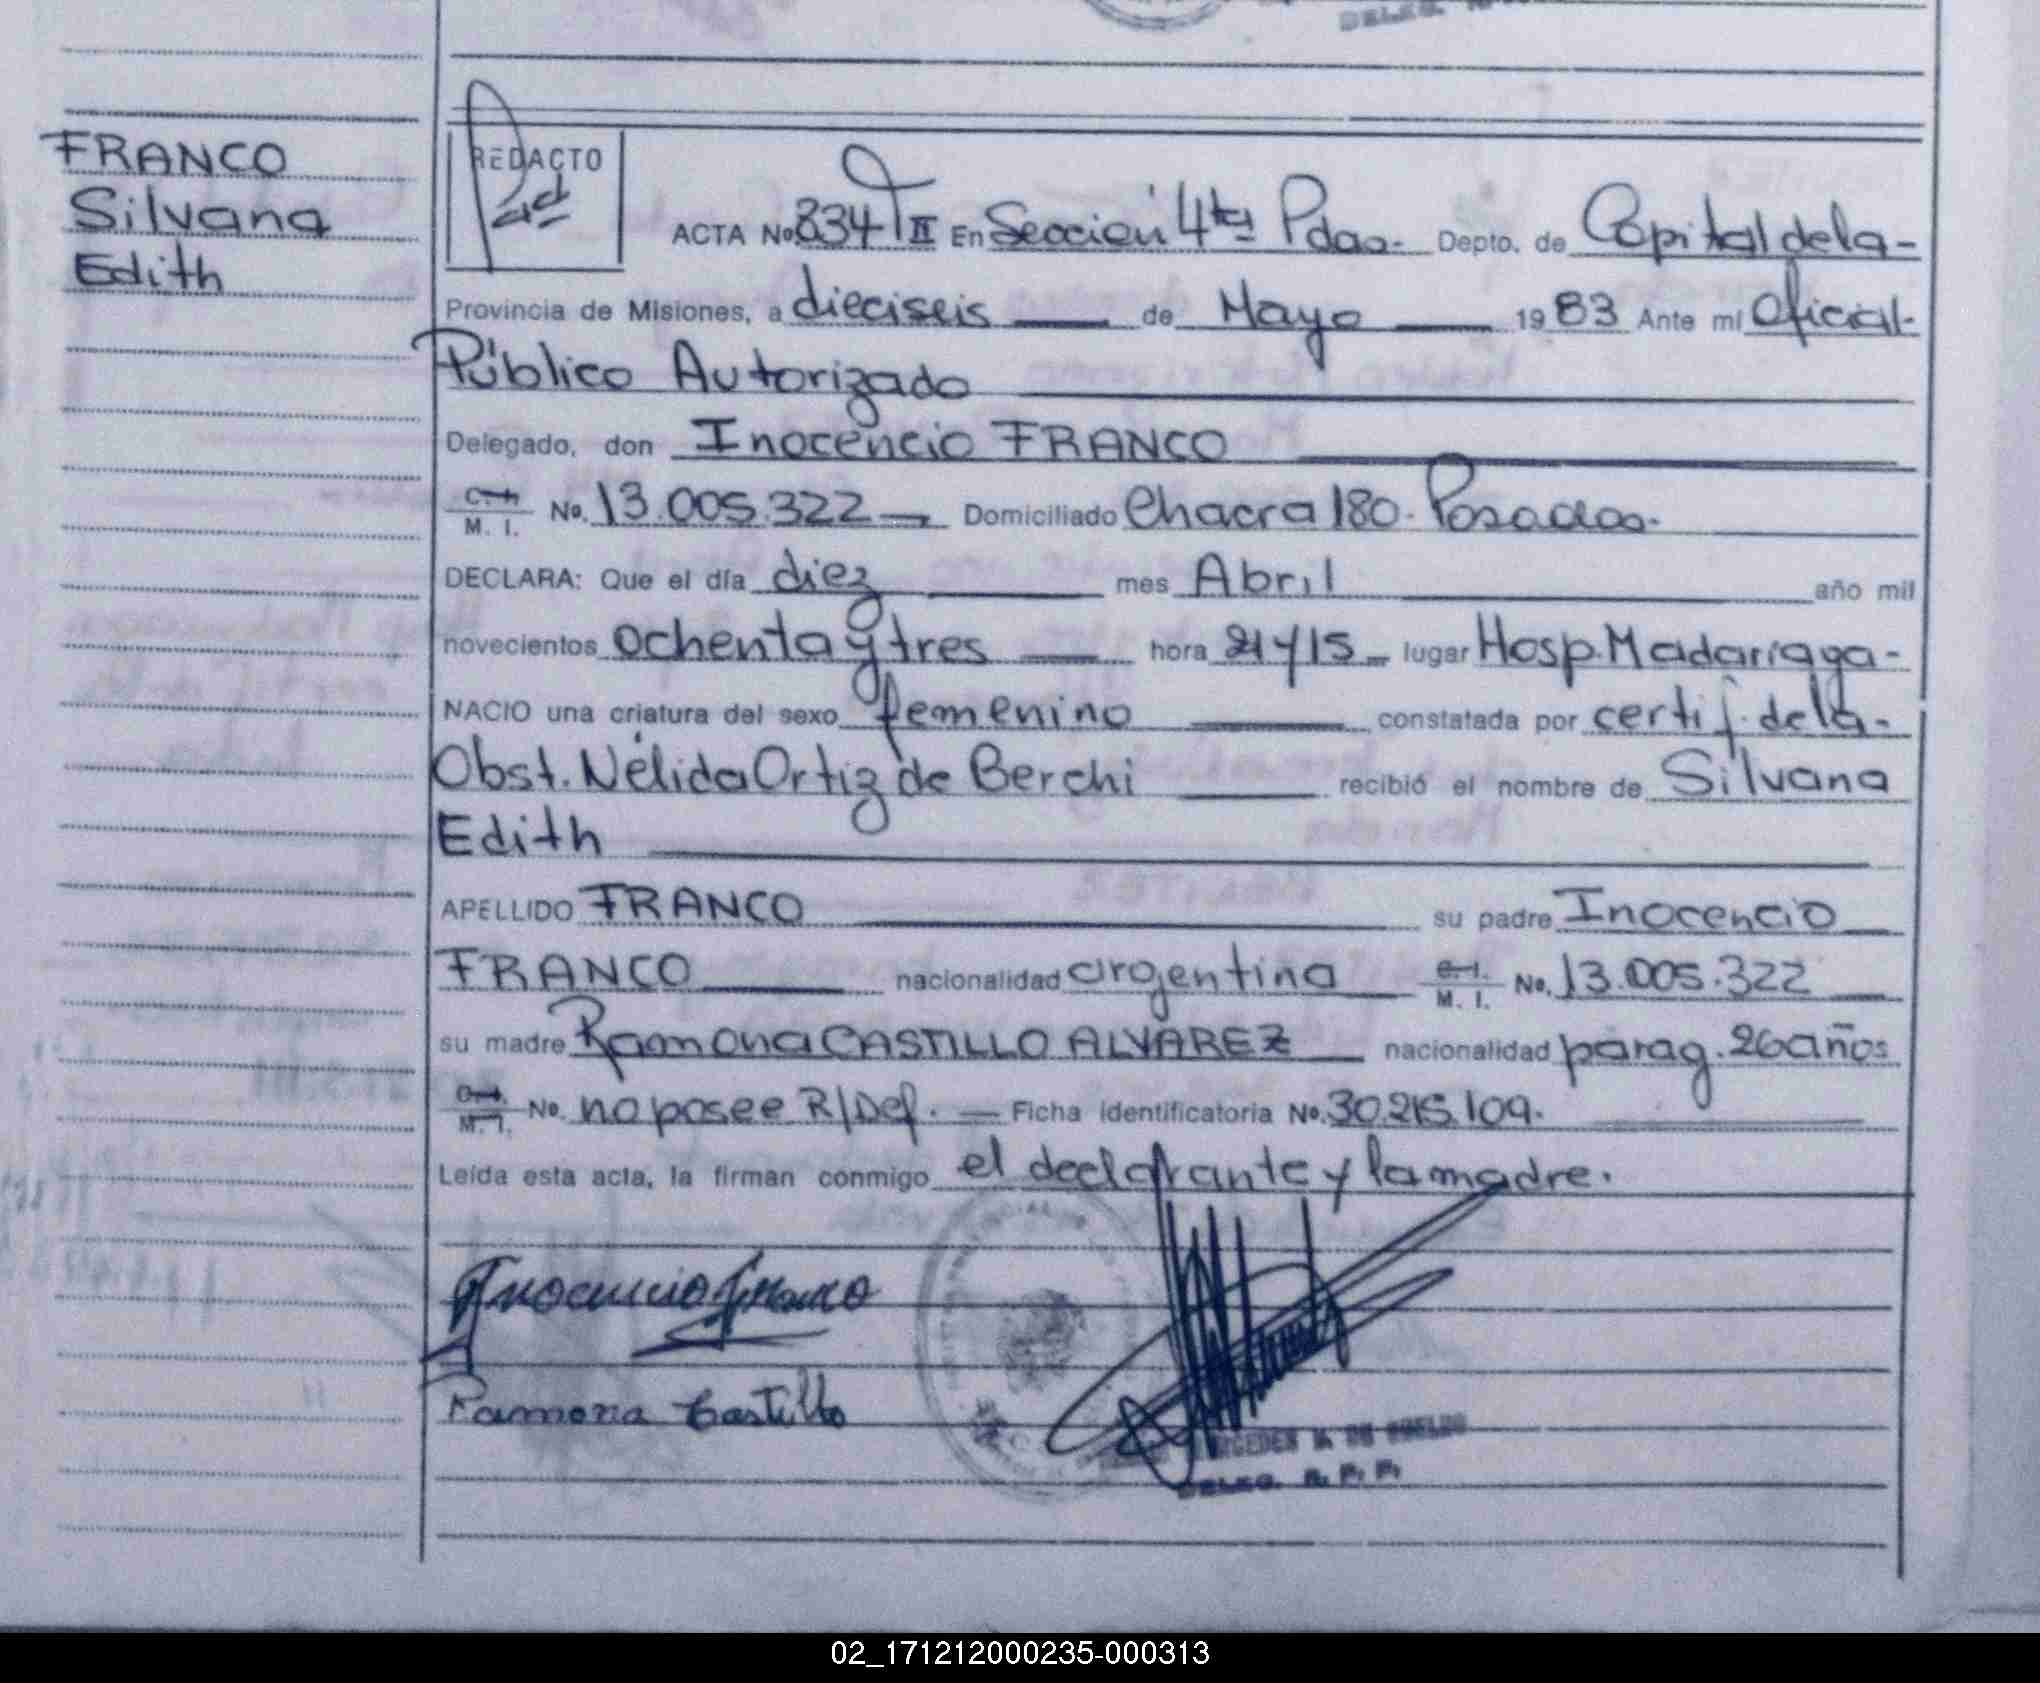 DELEG.
FRANCO
Silvana
Edith
REDACTO
ACTA No 834 T II En Sección 4ta Pdas. Depto. de Capital de la-
Provincia de Misiones, a dieciseis de Mayo 1983 Ante mí Oficial-
Público Autorizado
Delegado, don Inocencio FRANCO
C. I. M. I. No. 13.005.322 Domiciliado Chacra 180. Posadas.
DECLARA: Que el día diez mes Abril año mil
novecientos ochenta y tres hora 21 y 15 lugar Hosp. Madariaga-
NACIO una criatura del sexo femenino constatada por certif. de la-
Obst. Nélida Ortiz de Berchi recibió el nombre de Silvana
Edith
APELLIDO FRANCO su padre Inocencio
FRANCO nacionalidad argentina C. I. M. I. No. 13.005.322
su madre Ramona CASTILLO ALVAREZ nacionalidad parag. 26 años
C. I. M. I. No. no posee R/Def. Ficha identificatoria No. 30.215.109.
Leída esta acta, la firman conmigo el declarante y la madre.
Inocencio Franco
Ramona Castillo
DELEG. R. P. P.
02_171212000235-000313